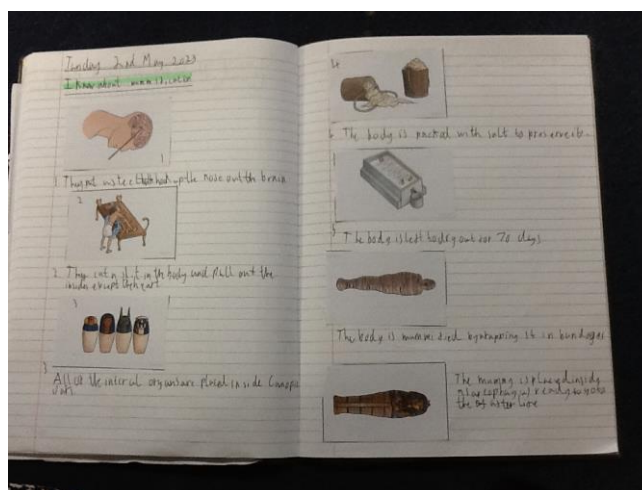 Tuesday 2nd May 2023
I know about mummification
1
1 They put metal hook up the nose out the brain
2
2. They cut a slit in the body and pull out the
insides except the heart
3
3 All of the internal organs are placed inside Canopic
Jars
4
4 The body is packed with salt to preserve it.
5 The body is left to dry out for 70 days
The body is mummified by wrapping it in bandages
The mummy is placed inside
a sarcophagus ready to go to
the after life